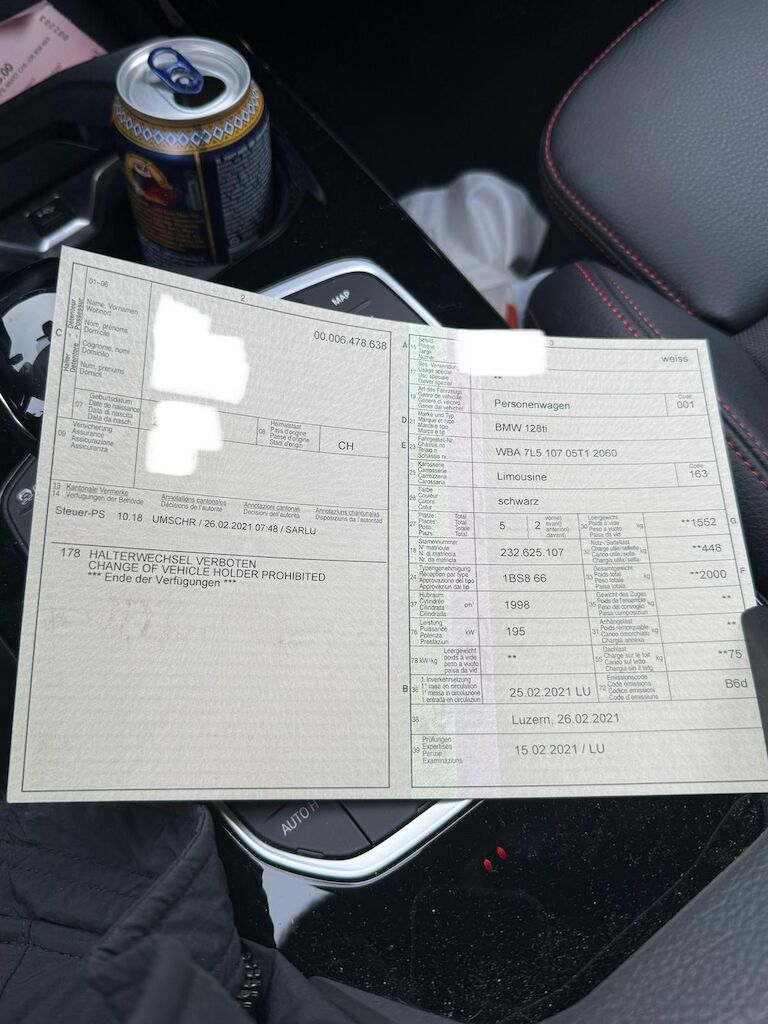 002203
MAP
01-06
2
C
Halter
Détenteur
Detentore
Possessur
Name, Vornamen
Wohnort
Nom, prénoms
Domicile
Cognome, nomi
Domicilio
Num, prenums
Domicil
00.006.478.638
07
Geburtsdatum
Date de naissance
Data di nascita
Data da nasch.
08
Heimatstaat
Pays d'origine
Paese d'origine
Stadi d'origin
CH
09
Versicherung
Assurance
Assicurazione
Assicuranza
13
14
Kantonale Vermerke
Verfügungen der Behörde
Annotations cantonales
Décisions de l'autorité
Annotazioni cantonali
Decisioni dell'autorità
Annotaziuns chantunalas
Disposiziuns da l'autoritad
Steuer-PS 10.18 UMSCHR / 26.02.2021 07:48 / SARLU
178 HALTERWECHSEL VERBOTEN
CHANGE OF VEHICLE HOLDER PROHIBITED
*** Ende der Verfügungen ***
3
A 15
Schild
Plaque
Targa
Numer
weiss
17
Bes. Verwendung
Usage spécial
Uso speciale
Diever spezial
**
19
Art des Fahrzeugs
Genre de véhicule
Genere di veicolo
Gener dal vehichel
Personenwagen
Code
001
D 21
Marke und Typ
Marque et type
Marca e tipo
Marca e tip
BMW 128ti
E 23
Fahrgestell-Nr.
Châssis no
Telaio n.
Schassis nr.
WBA 7L5 107 05T1 2060
25
Karosserie
Carrosserie
Carrozzeria
Carossaria
Limousine
Code
163
26
Farbe
Couleur
Colore
Colur
schwarz
27
Plätze: Total
Places: Total
Posti: Totale
Plazs: Total
5
2
vorne)
avant)
davanti)
davant)
30
Leergewicht
Poids à vide
Peso a vuoto
Paisa da vid
kg
**1552
G
18
Stammnummer
N° matricule
N. di matricola
Nr. da matricla
232.625.107
32
Nutz-/Sattellast
Charge utile/sellette
Carico utile/sella
Chargia utila/sella
kg
**448
24
Typengenehmigung
Réception par type
Approvazione del tipo
Approvaziun dal tip
1BS8 66
33
Gesamtgewicht
Poids total
Peso totale
Paisa totala
kg
**2000
F
37
Hubraum
Cylindrée
Cilindrata
Cilindrada
cm³
1998
35
Gewicht des Zuges
Poids de l'ensemble
Peso del convoglio
Paisa cumposiziun
kg
**
76
Leistung
Puissance
Potenza
Prestaziun
kW
195
31
Anhängelast
Poids remorquable
Carico rimorchiato
Chargia annexa
kg
**
78 kW/kg
Leergewicht
poids à vide
peso a vuoto
paisa da vid
**
55
Dachlast
Charge sur le toit
Carico sul tetto
Chargia sin il tetg
kg
**75
B 36
1. Inverkehrsetzung
1re mise en circulation
1a messa in circolazione
1. entrada en circulaziun
25.02.2021 LU
72
Emissionscode
Code émissions
Codice emissioni
Code d'emissiuns
B6d
38
Luzern, 26.02.2021
39
Prüfungen
Expertises
Perizie
Examinaziuns
15.02.2021 / LU
AUTO H